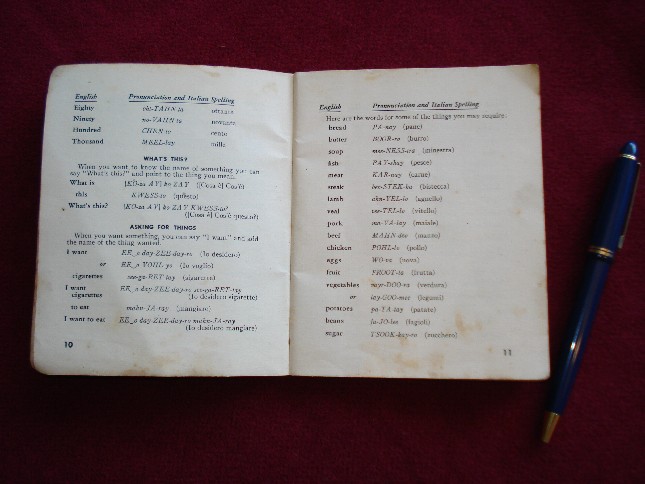 English Pronunciation and Italian Spelling
Eighty oht-TAHN-ta ottanta
Ninety no-VAHN-ta novanta
Hundred CHEN-to cento
Thousand MEEL-lay mille
WHAT'S THIS?
When you want to know the name of something you can
say "What's this?" and point to the thing you mean.
What is [KO-za AY] ko ZAY ([Cosa è] Cos'è)
this KWESS-to (questo)
What's this? [KO-za AY] ko ZAY KWESS-to?
([Cosa è] Cos'è questo?)
ASKING FOR THINGS
When you want something, you can say "I want" and add
the name of the thing wanted.
I want EE_o day-ZEE-day-ro (Io desidero)
or EE_o VOHL-yo (Io voglio)
cigarettes see-ga-RET-tay (sigarette)
I want EE_o day-ZEE-day-ro see-ga-RET-tay
cigarettes (Io desidero sigarette)
to eat mahn-JA-ray (mangiare)
I want to eat EE_o day-ZEE-day-ro mahn-JA-ray
(Io desidero mangiare)
10
English Pronunciation and Italian Spelling
Here are the words for some of the things you may require:
bread PA-nay (pane)
butter BOOR-ro (burro)
soup mee-NESS-tra (minestra)
fish PAY-shay (pesce)
meat KAR-nay (carne)
steak bee-STEK-ka (bistecca)
lamb ahn-YEL-lo (agnello)
veal vee-TEL-lo (vitello)
pork ma-YA-lay (maiale)
beef MAHN-dzo (manzo)
chicken POHL-lo (pollo)
eggs WO-va (uova)
fruit FROOT-ta (frutta)
vegetables vayr-DOO-ra (verdura)
or lay-GOO-mee (legumi)
potatoes pa-TA-tay (patate)
beans fa-JO-lee (fagioli)
sugar TSOOK-kay-ro (zucchero)
11